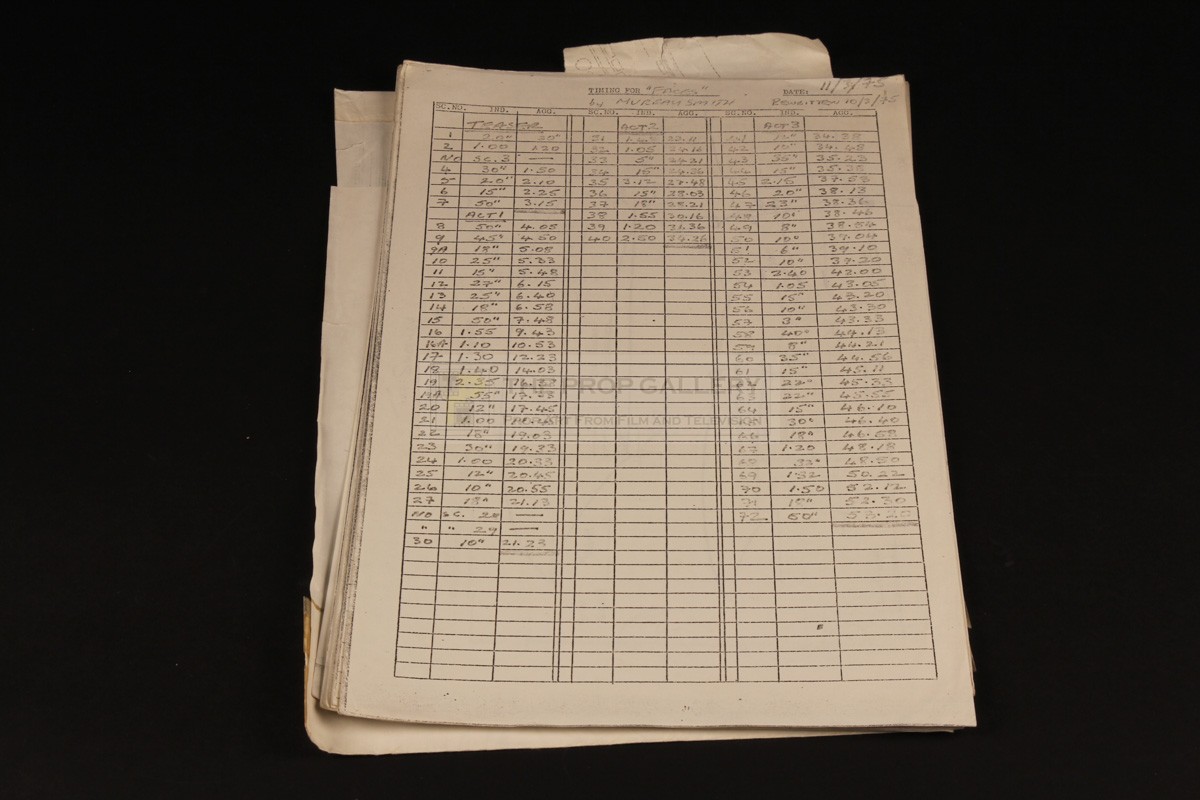 TIMING FOR "FACES" DATE: 11/3/75
by MURRAY SMITH
SC.NO. IND. AGG. SC.NO. IND. AGG. SC.NO. IND. AGG.
TEASER ACT 2 ACT 3
1 20" 20"
2 1.00 1.20
NO SC. 3 —
4 30" 1.50
5 20" 2.10
6 15" 2.25
7 50" 3.15
ACT 1
8 50" 4.05
9 45" 4.50
9A 18" 5.08
10 25" 5.33
11 15" 5.48
12 27" 6.15
13 25" 6.40
14 18" 6.58
15 50" 7.48
16 1.55 9.43
16A 1.10 10.53
17 1.30 12.23
18 1.40 14.03
19 2.35
19A 55"
20 12" 17.45
21 1.00
22 18" 19.03
23 30" 19.33
24 1.00 20.33
25 12" 20.45
26 10" 20.55
27 18" 21.13
NO SC. 28 —
" " 29 —
30 10" 21.23
35 2.12 27.48
36 15" 28.03
37 18" 28.21
38 1.55 30.16
39 1.20 31.36
40 2.50
34.38
42 10" 34.48
43 35" 35.23
45 2.15
46 20" 38.13
47 23" 38.36
10" 38.46
49 8" 38.54
50 10" 39.04
51 6" 39.10
52 10" 39.20
53 2.40 42.00
54 1.05 43.05
55 15" 43.20
56 10" 43.30
57 3" 43.33
58 40" 44.13
59 8" 44.21
60 35" 44.56
61 15" 45.11
22" 45.33
63 22" 45.55
64 15" 46.10
30" 46.40
18" 46.58
1.20 48.18
32" 48.50
69 1.32 50.22
70 1.50 52.12
71 18" 52.30
72 50" 53.20
THE PROP GALLERY
FROM FILM AND TELEVISION